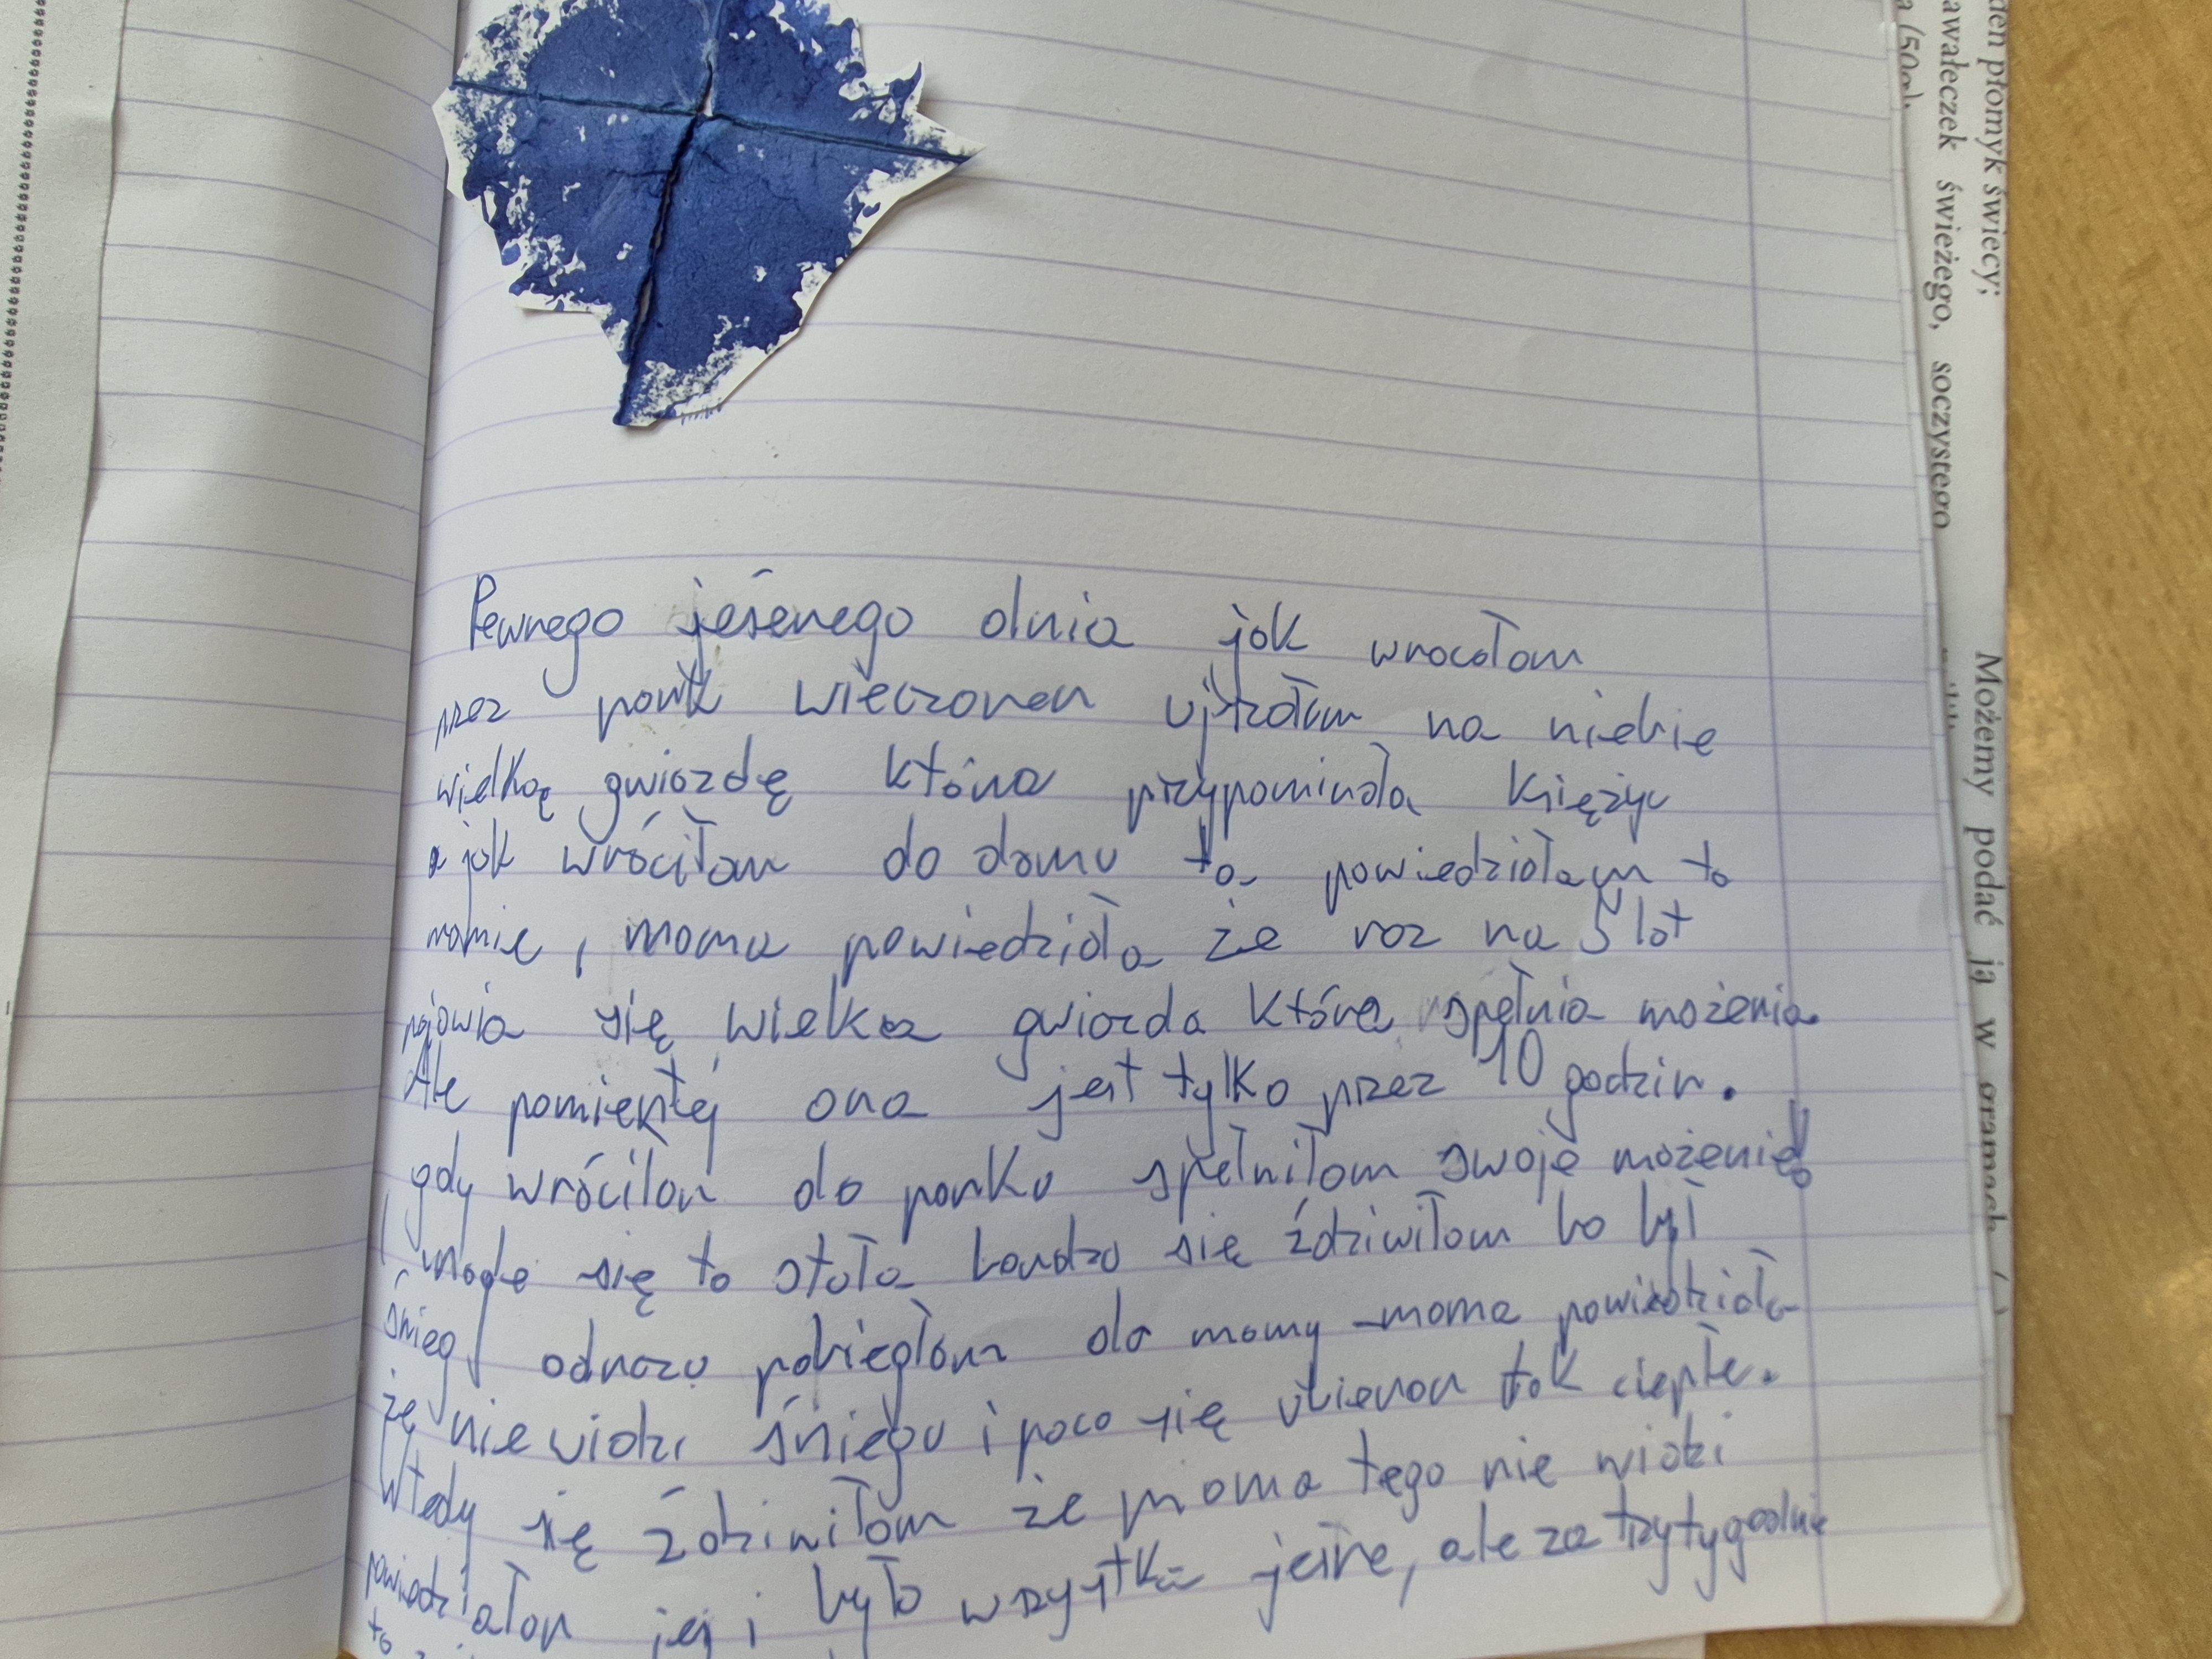 Pewnego jesienego dnia jak wrocałam
przez park wieczorem ujżałam na niebie
wielkąę gwiazdę która przypominała Księżyc
a jak wróciłam do domu to powiedziałam to
mamie, mama powiedziała że raz na 5 lat
pojowia się wielka gwiazda która spełnia mażenia.
Ale pamientej ona jest tylko przez 10 godzin.
gdy wróciłam do parku spełniłam swoje mażenie!
I nagle się to stało bardzo się ździwiłam bo był
śnieg odrazu pobiegłam do mamy mama powiedziała
żę nie widzi śniegu i poco się ubieram tak ciepłe.
Wtedy się ździwiłam że mama tego nie widzi
powiedziałam jej i było wszystko jesne, ale za trzy tygodnie
to
den płomyk świecy;
awałeczek świeżego, soczystego
Możemy podać ją w gramach